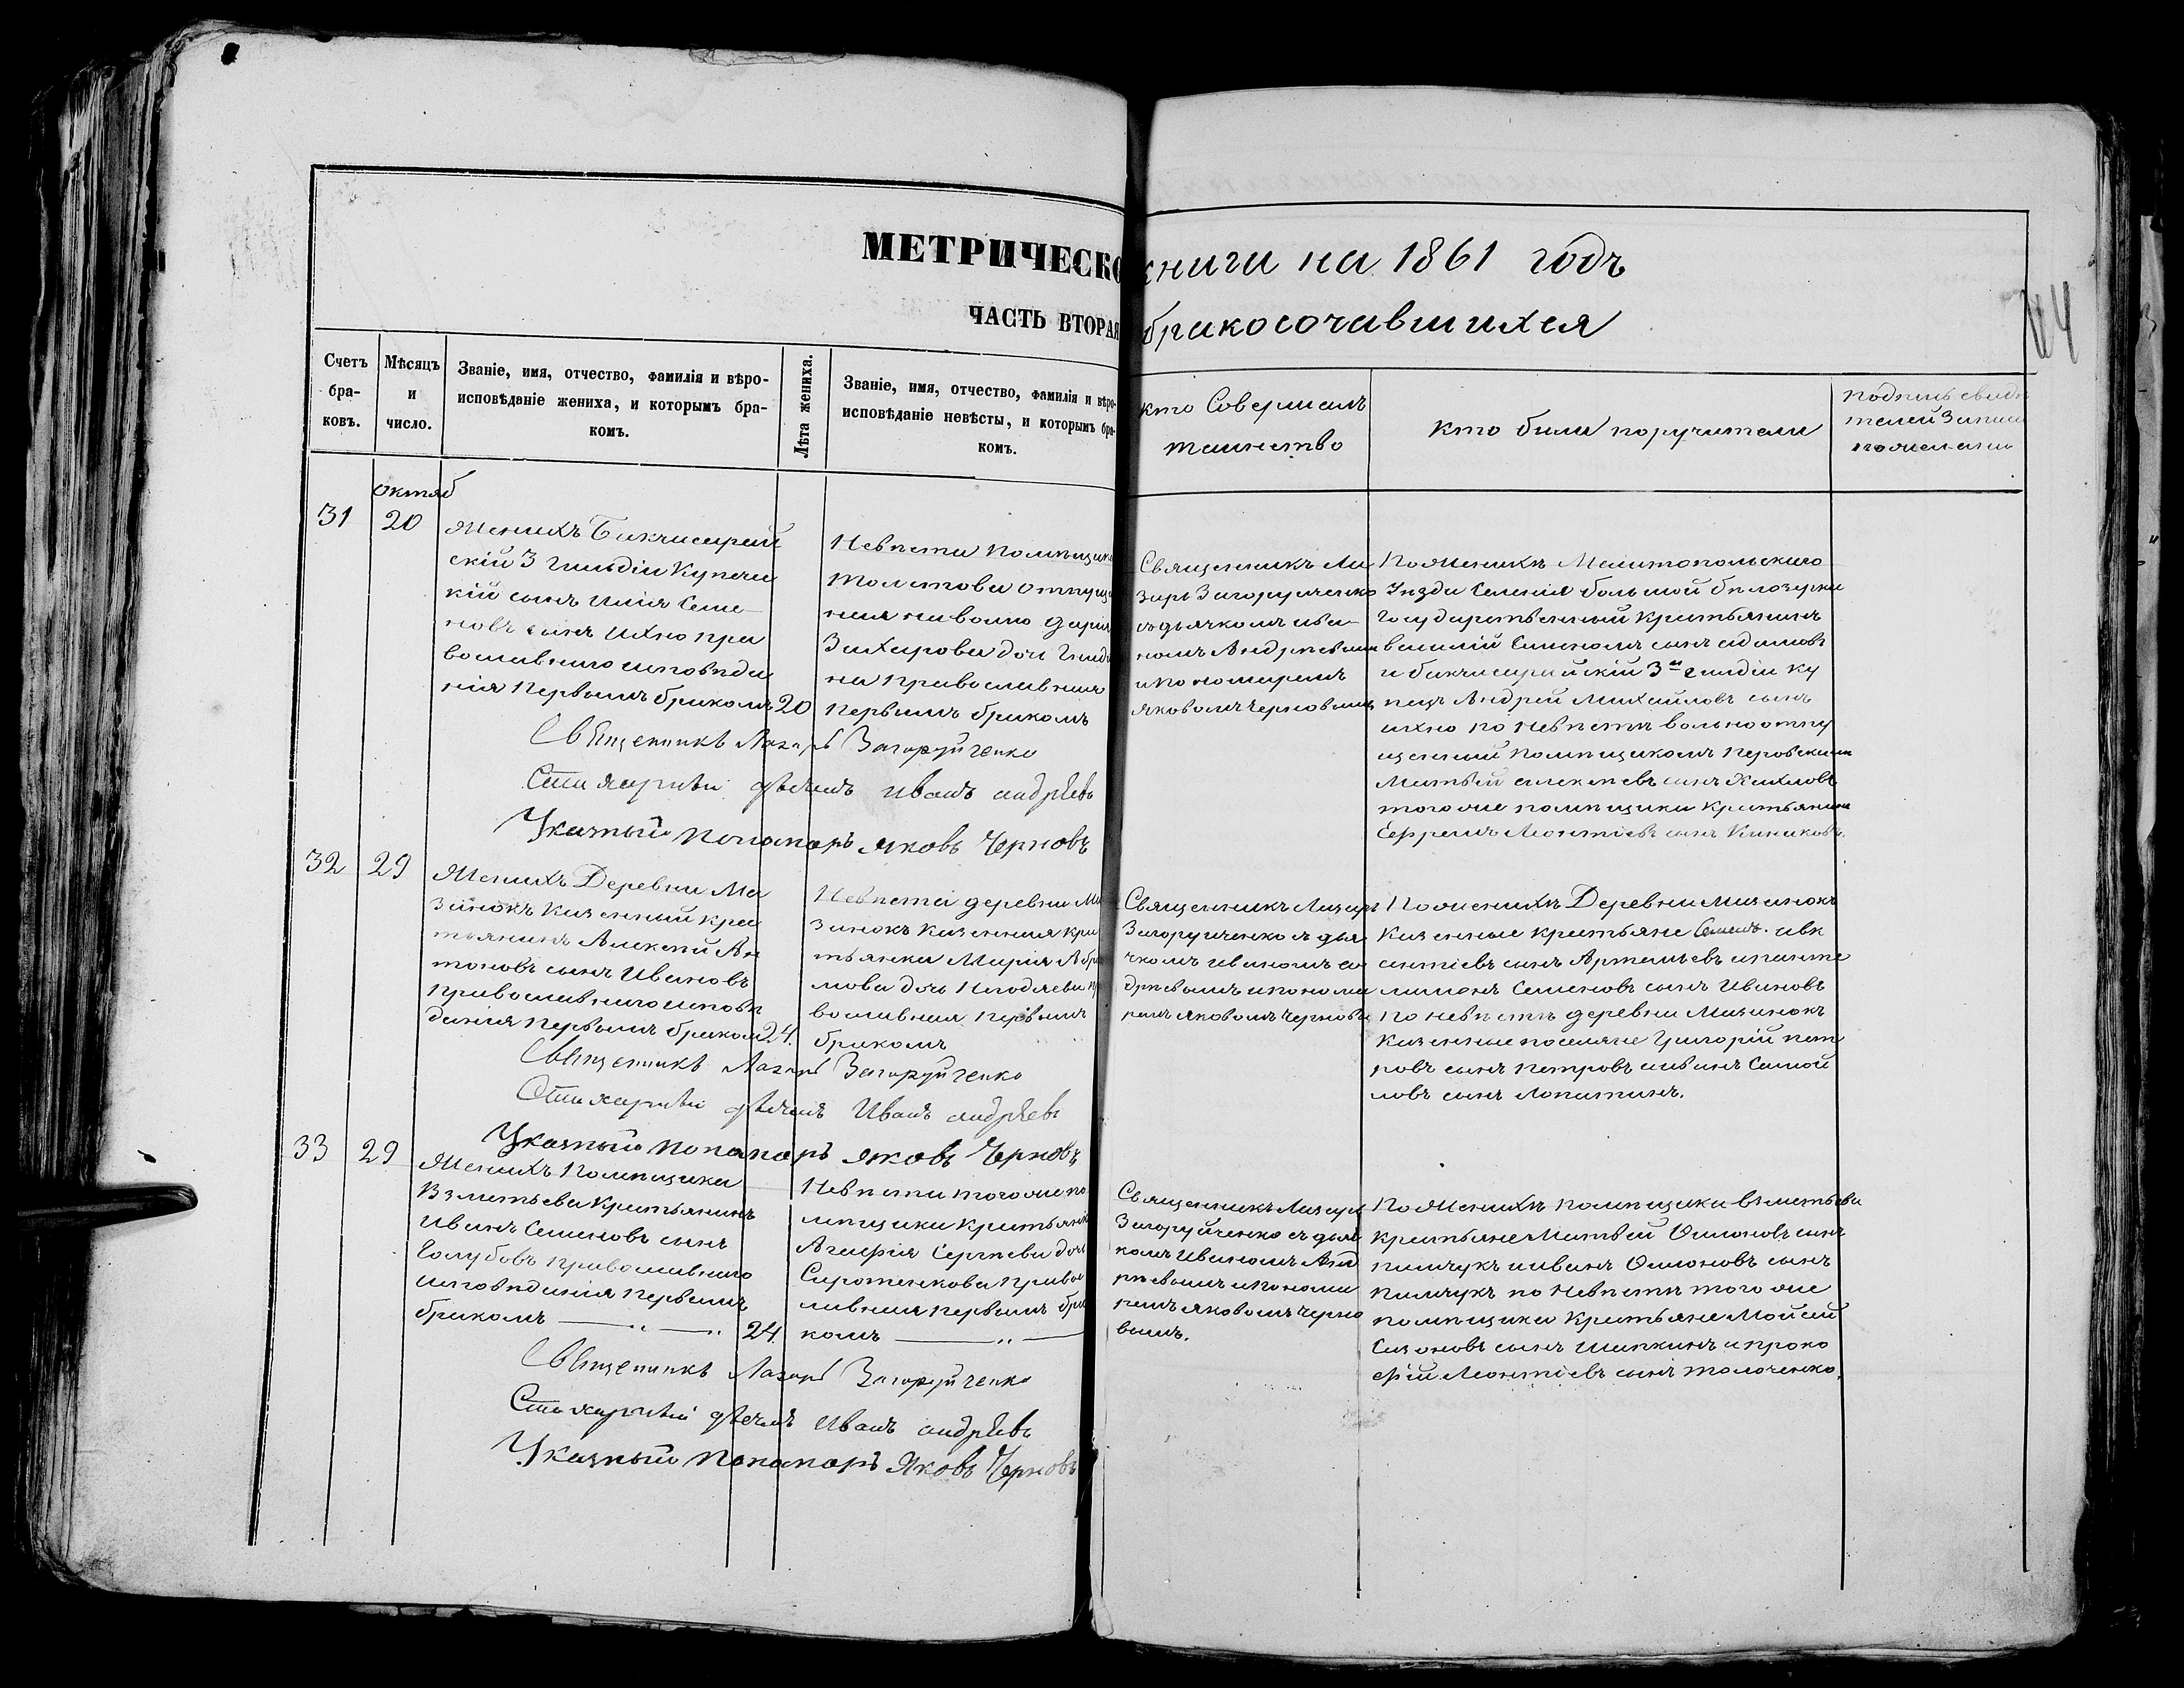 МЕТРИЧЕСКО книги на 1861 годъ
ЧАСТЬ ВТОРАЯ бракосочавшихся
44
Счетъ бра- ковъ.
Мѣсяцъ и число.
Званіе, имя, отчество, фамилія и вѣро-
исповѣданіе жениха, и которымъ бра-
комъ.
Лѣта жениха.
Званіе, имя, отчество, фамилія и вѣро-
исповѣданіе невѣсты, и которымъ бра-
комъ.
кто Совершалъ
таинство
кто были поручители
подпись свидѣ
телей Записи
по желанію
октяб
31
20
Женихъ Бакчисарай
скій 3 гильдіи Купече
кій сынъ Илія Семе
новъ сынъ Ихно пра
вославнаго исповѣда
нія Первымъ бракомъ 20
Невѣста Помѣщика
Толстова отпуще
ная наволю Дарія
Захарова дочь Гинди
на православная
первымъ бракомъ
Священникъ Ла
зарь Загоруйченко
съ дьячкомъ ива
номъ Андрѣевымъ
и пономаремъ
яковомъ Черновымъ
По Женихѣ Мелитопольскаго
Уѣзда Селенія большой бѣлозерки
Государственный Крестьянинъ
василій Симоновъ сынъ адамовъ
и бакчисарайскій 3й гилдіи ку
пецъ Андрей Михайловъ сынъ
ихно по Невѣстѣ вольноотпу
щенный помѣщикомъ перовскимъ
Матвей алексѣевъ сынъ Жихловъ
того же помѣщика Крестьянинъ
Ефремъ Леонтіевъ сынъ Кинаковъ.
Священникъ Лазарь Загоруйченко
Стихарный дьячекъ иванъ андрѣевъ
Указный понамарь яковъ Черновъ
32
29
Женихъ Деревни Ма
зинокъ казенный крес
тьянинъ Алексѣй Ан
тоновъ сынъ Ивановъ
православнаго исповѣ
данія первымъ браком 24.
Невѣста деревни Ма
зинокъ Казенная Кре
стьянка Марія Абра
мова дочь Негодяева пр
вославная первымъ
бракомъ
Священникъ Лазарь
Загоруйченко съ дья
чкомъ иваномъ ан
дрѣевымъ и понома
ремъ яковомъ Черновы
По женихѣ Деревни Мазинокъ
казенные крестьяне Семенъ авк
сентіевъ сынъ Артемьевъ и панте
лимонъ Семеновъ сынъ Ивановъ
по невѣстѣ деревни Мазинокъ
Казенные поселяне Григорій пет
ровъ сынъ петровъ и иванъ Самой
ловъ сынъ Лопатинъ.
Священникъ Лазарь Загоруйченко
Стихарный дьячекъ Иванъ андрѣевъ
Указный понамарь яковъ Черновъ
33
29
Женихъ Помѣщика
Взметьева Крестьянинъ
Иванъ Семеновъ сынъ
Голубовъ православнаго
исповѣданія первымъ
бракомъ 24.
Невѣста того же по
мѣщика крестьянк
Агафія Сергѣева дочь
Сиротенкова право
славная первымъ бра
комъ
Священникъ Лазарь
Загоруйченко съ дья
комъ Иваномъ Анд
рѣевымъ и понома
ремъ яковомъ Черно
вымъ.
По Женихѣ помѣщика взметьева
крестьяне Матвей Ѳомовъ сынъ
пилчукъ и иванъ Ѳомовъ сынъ
пилчукъ по Невѣстѣ того же
помѣщика крестьяне Мойсей
Сазоновъ сынъ Шапкинъ и проко
фій Леонтіевъ сынъ Толоченко.
Священникъ Лазарь Загоруйченко
Стихарный дьячекъ иванъ андрѣевъ
Указный понамарь Яковъ Черновъ